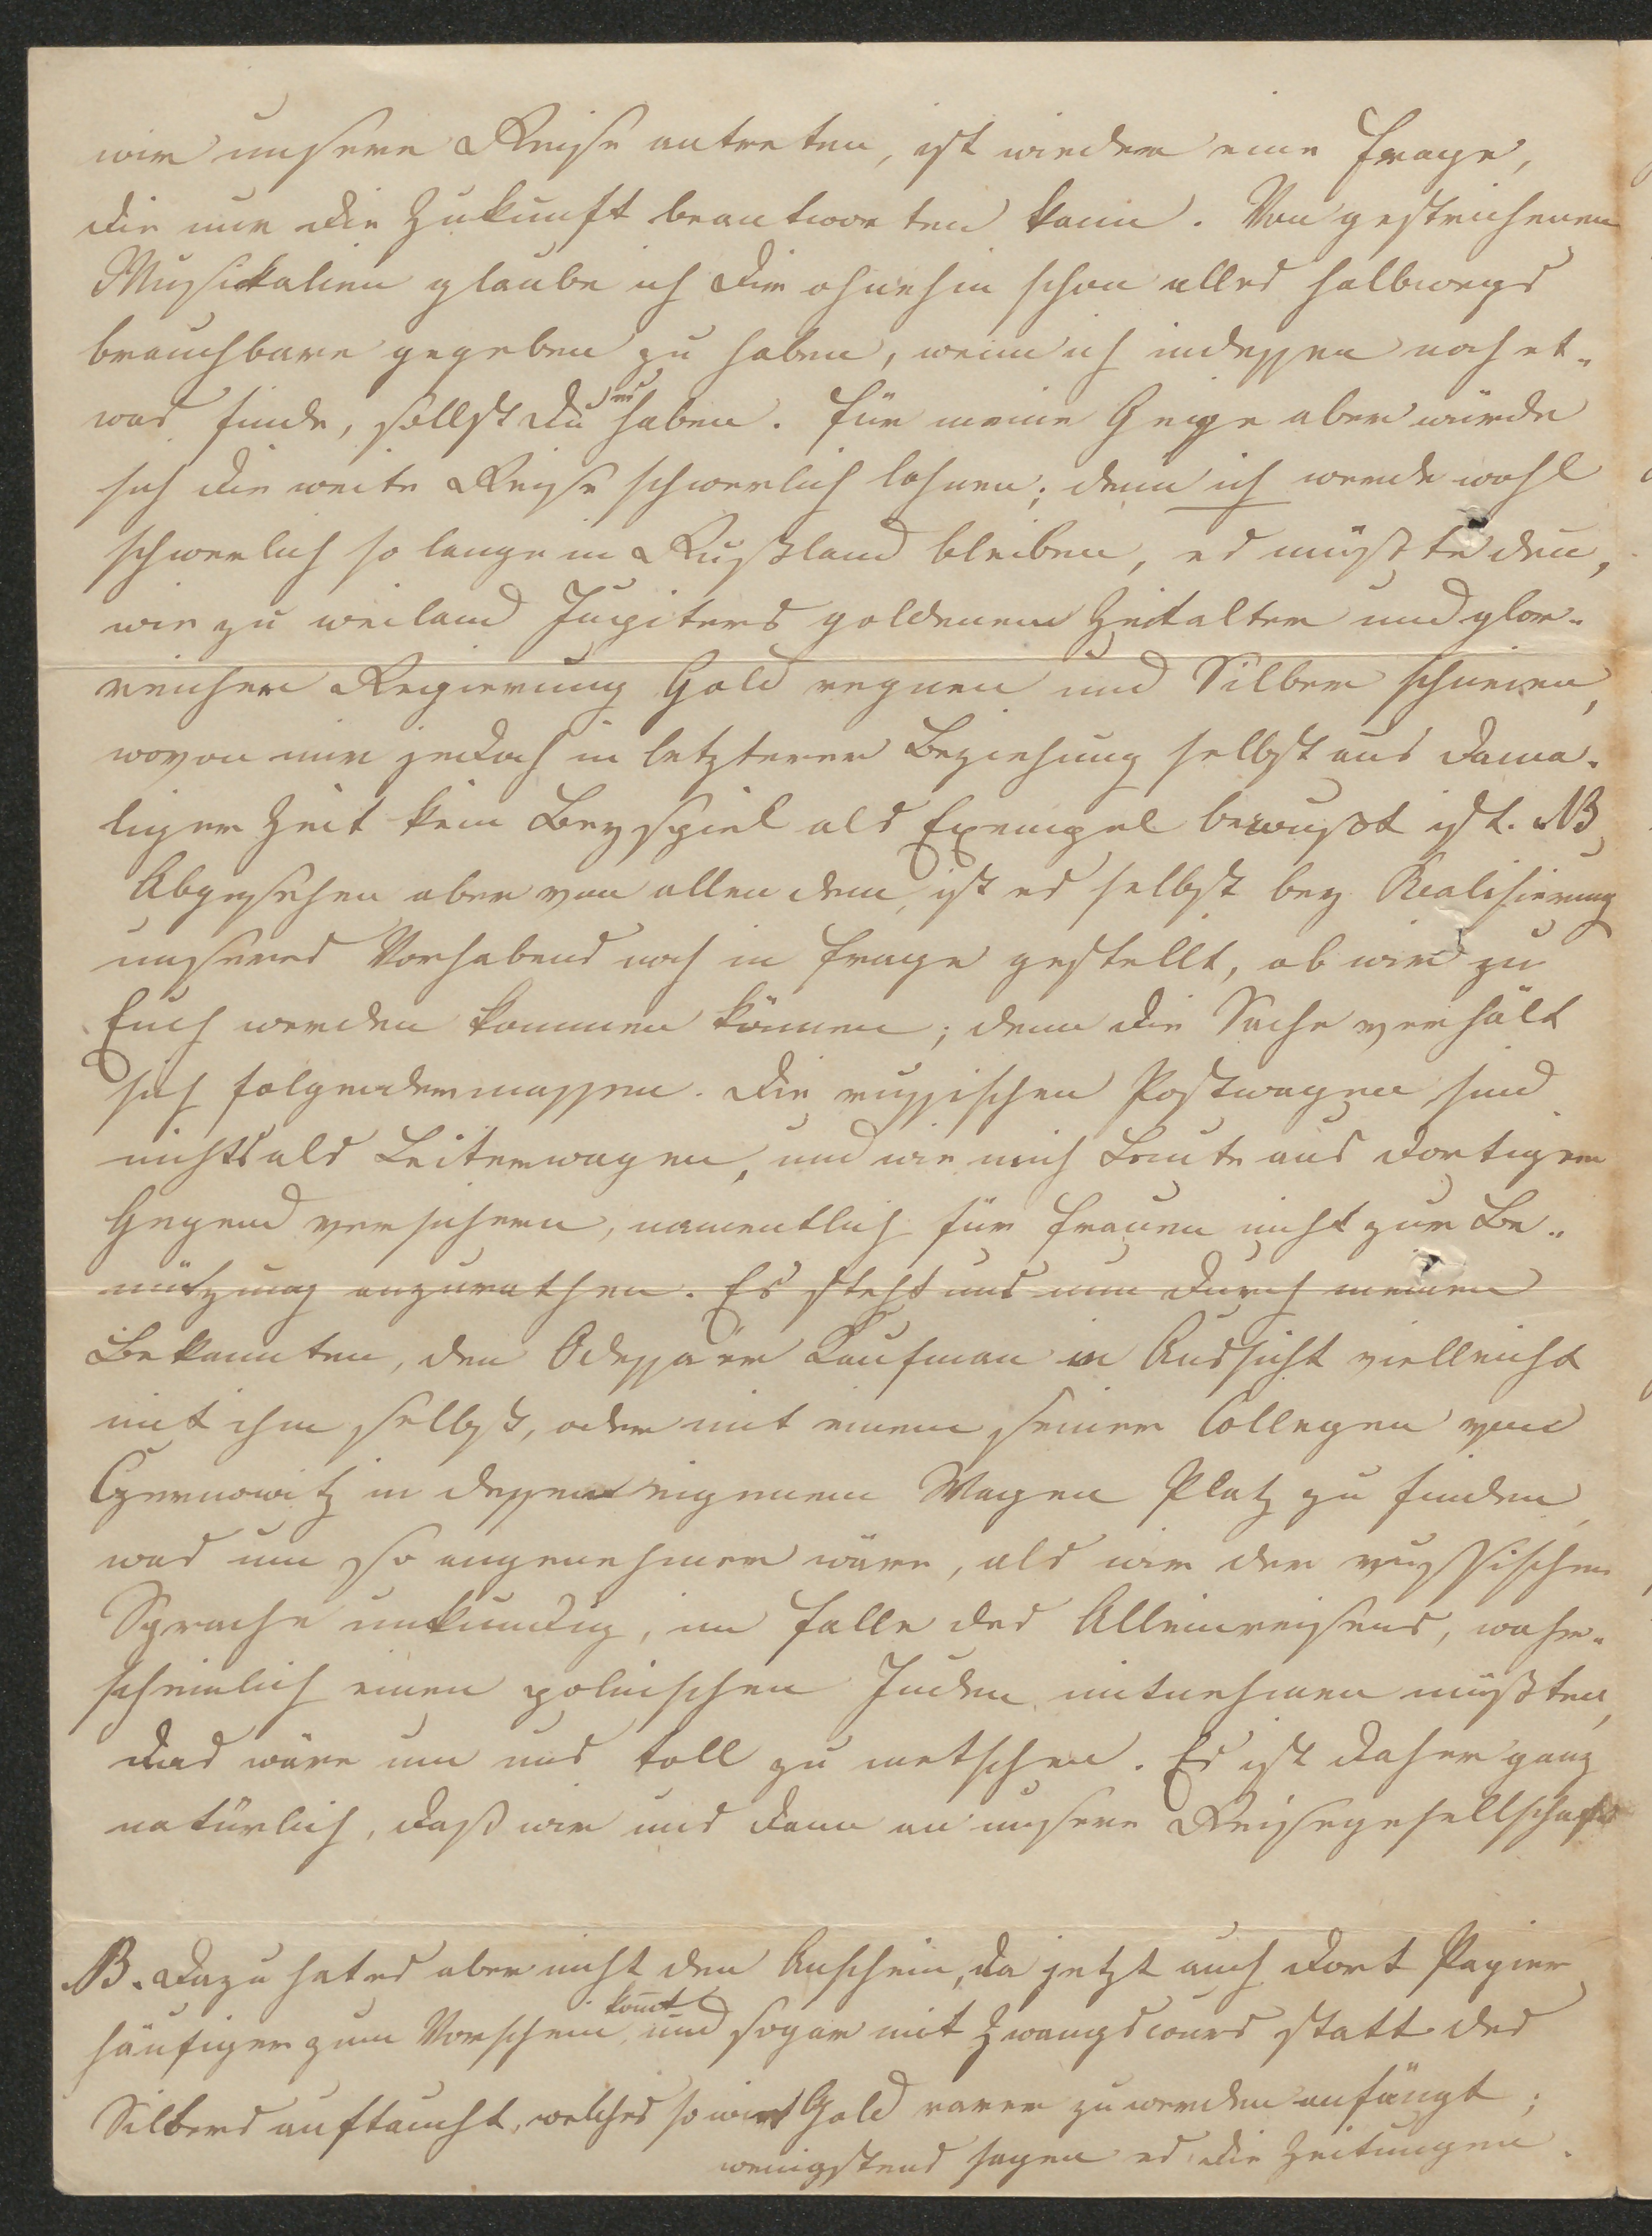 wir unsere Reise antreten, ist wieder eine Frage,
die nur die Zukunft beantworten kann. Von gestrichenen
Musickalien glaube ich Dir ohnehin schon alles halbwegs
brauchbare gegeben zu haben, wenn ich indessen noch et-
was finde, sollst Du es haben. Für meine Geige aber würde
sich die weite Reise schwerlich lohnen; denn ich werde wohl
schwerlich so lange in Rußland bleiben, es müßte den,
wie zu weiland Jupiters goldenem Zeitalter und glor-
reicher Regierung Gold regnen und Silber schneien,
wovon mir jedoch in letzterer Beziehung selbst aus dama-
liger Zeit kein Beyspiel als Exempel bewußt ist. NB
Abgesehen aber von allen dem, ist es selbst bey Realisierung
unseres Vorhabens noch in Frage gestellt, ob wir zu
Euch werden kommen können; denn die Sache verhält
sich folgendermassen. Die russischen Postwagen sind
nichts als Leiterwagen, und wie mich Leute aus dortiger
Gegend versichern, namentlich für Frauen nicht zur Be-
nützung anzurathen. Es steht uns nun durch meinen
Bekannten, den Odessaer Kaufman in Aussicht vielleicht
mit ihm selbst, oder mit einem seiner Collegen von
Czernowitz in dessen eigenem Wagen Platz zu finden,
was um so angenehmer wäre, als wir der russischen
Sprache unkundig, im Falle des Alleinreisens, wahr-
scheinlich einen polnischen Juden mitnehmen müßten,
das wäre um uns toll zu metschen. Es ist daher ganz
natürlich, daß wir uns dann an unsere Reisegesellschaft
NB. Dazu hat es aber nicht den Anschein, da jetzt auch dort Papier
häufiger zum Vorschein komt und sogar mit Zwangscours statt des
Silbers auftaucht, welches so wie Gold rarer zu werden anfängt;
wenigstens sagen es die Zeitungen.